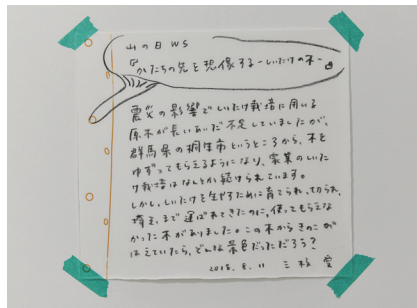 山の日 WS
『かたちの先を想像する-しいたけの木-』
震災の影響でしいたけ栽培に用いる
原木が長いあいだ不足していましたが、
群馬県の桐生市というところから、木を
ゆずってもらえるようになり、家業のしいた
け栽培はなんとか続けられています。
しかし、しいたけを生やすために育てられ、切られ、
埼玉まで運ばれてきたのに、使ってもらえな
かった木がありました。この木からきのこが
はえていたら、どんな景色だっただろう?
2018. 8. 11 三枝 愛